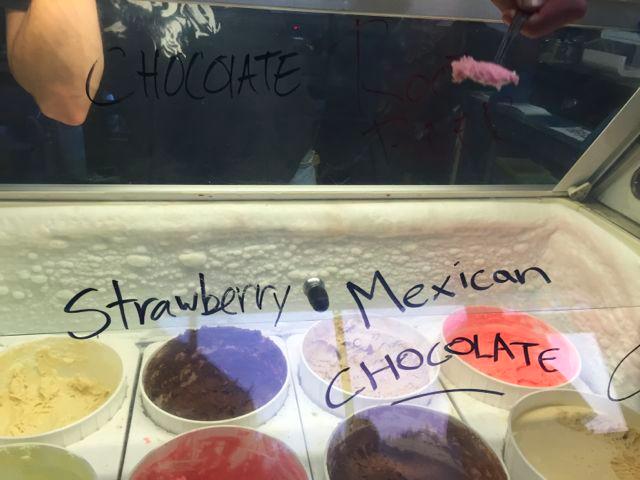 CHOCOLATE
Root
Beer
Strawberry
Mexican
CHOCOLATE